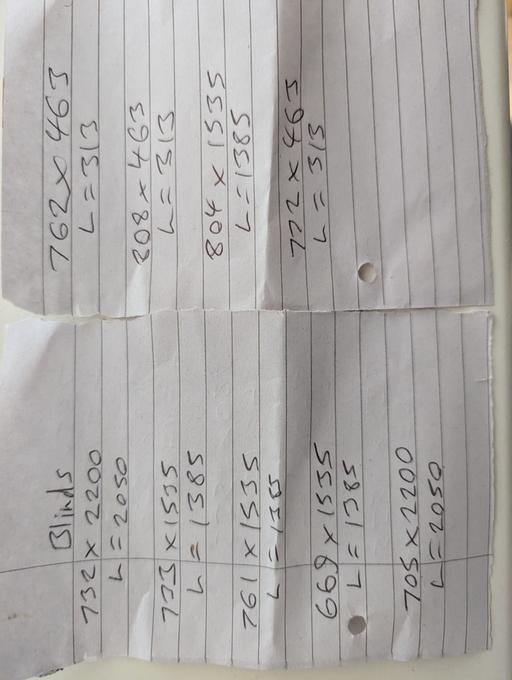 Blinds
732 x 2200
L = 2050
773 x 1535
L = 1385
761 x 1535
L = 1385
669 x 1535
L = 1385
705 x 2200
L = 2050
762 x 463
L = 313
808 x 463
L = 313
804 x 1535
L = 1385
772 x 463
L = 313